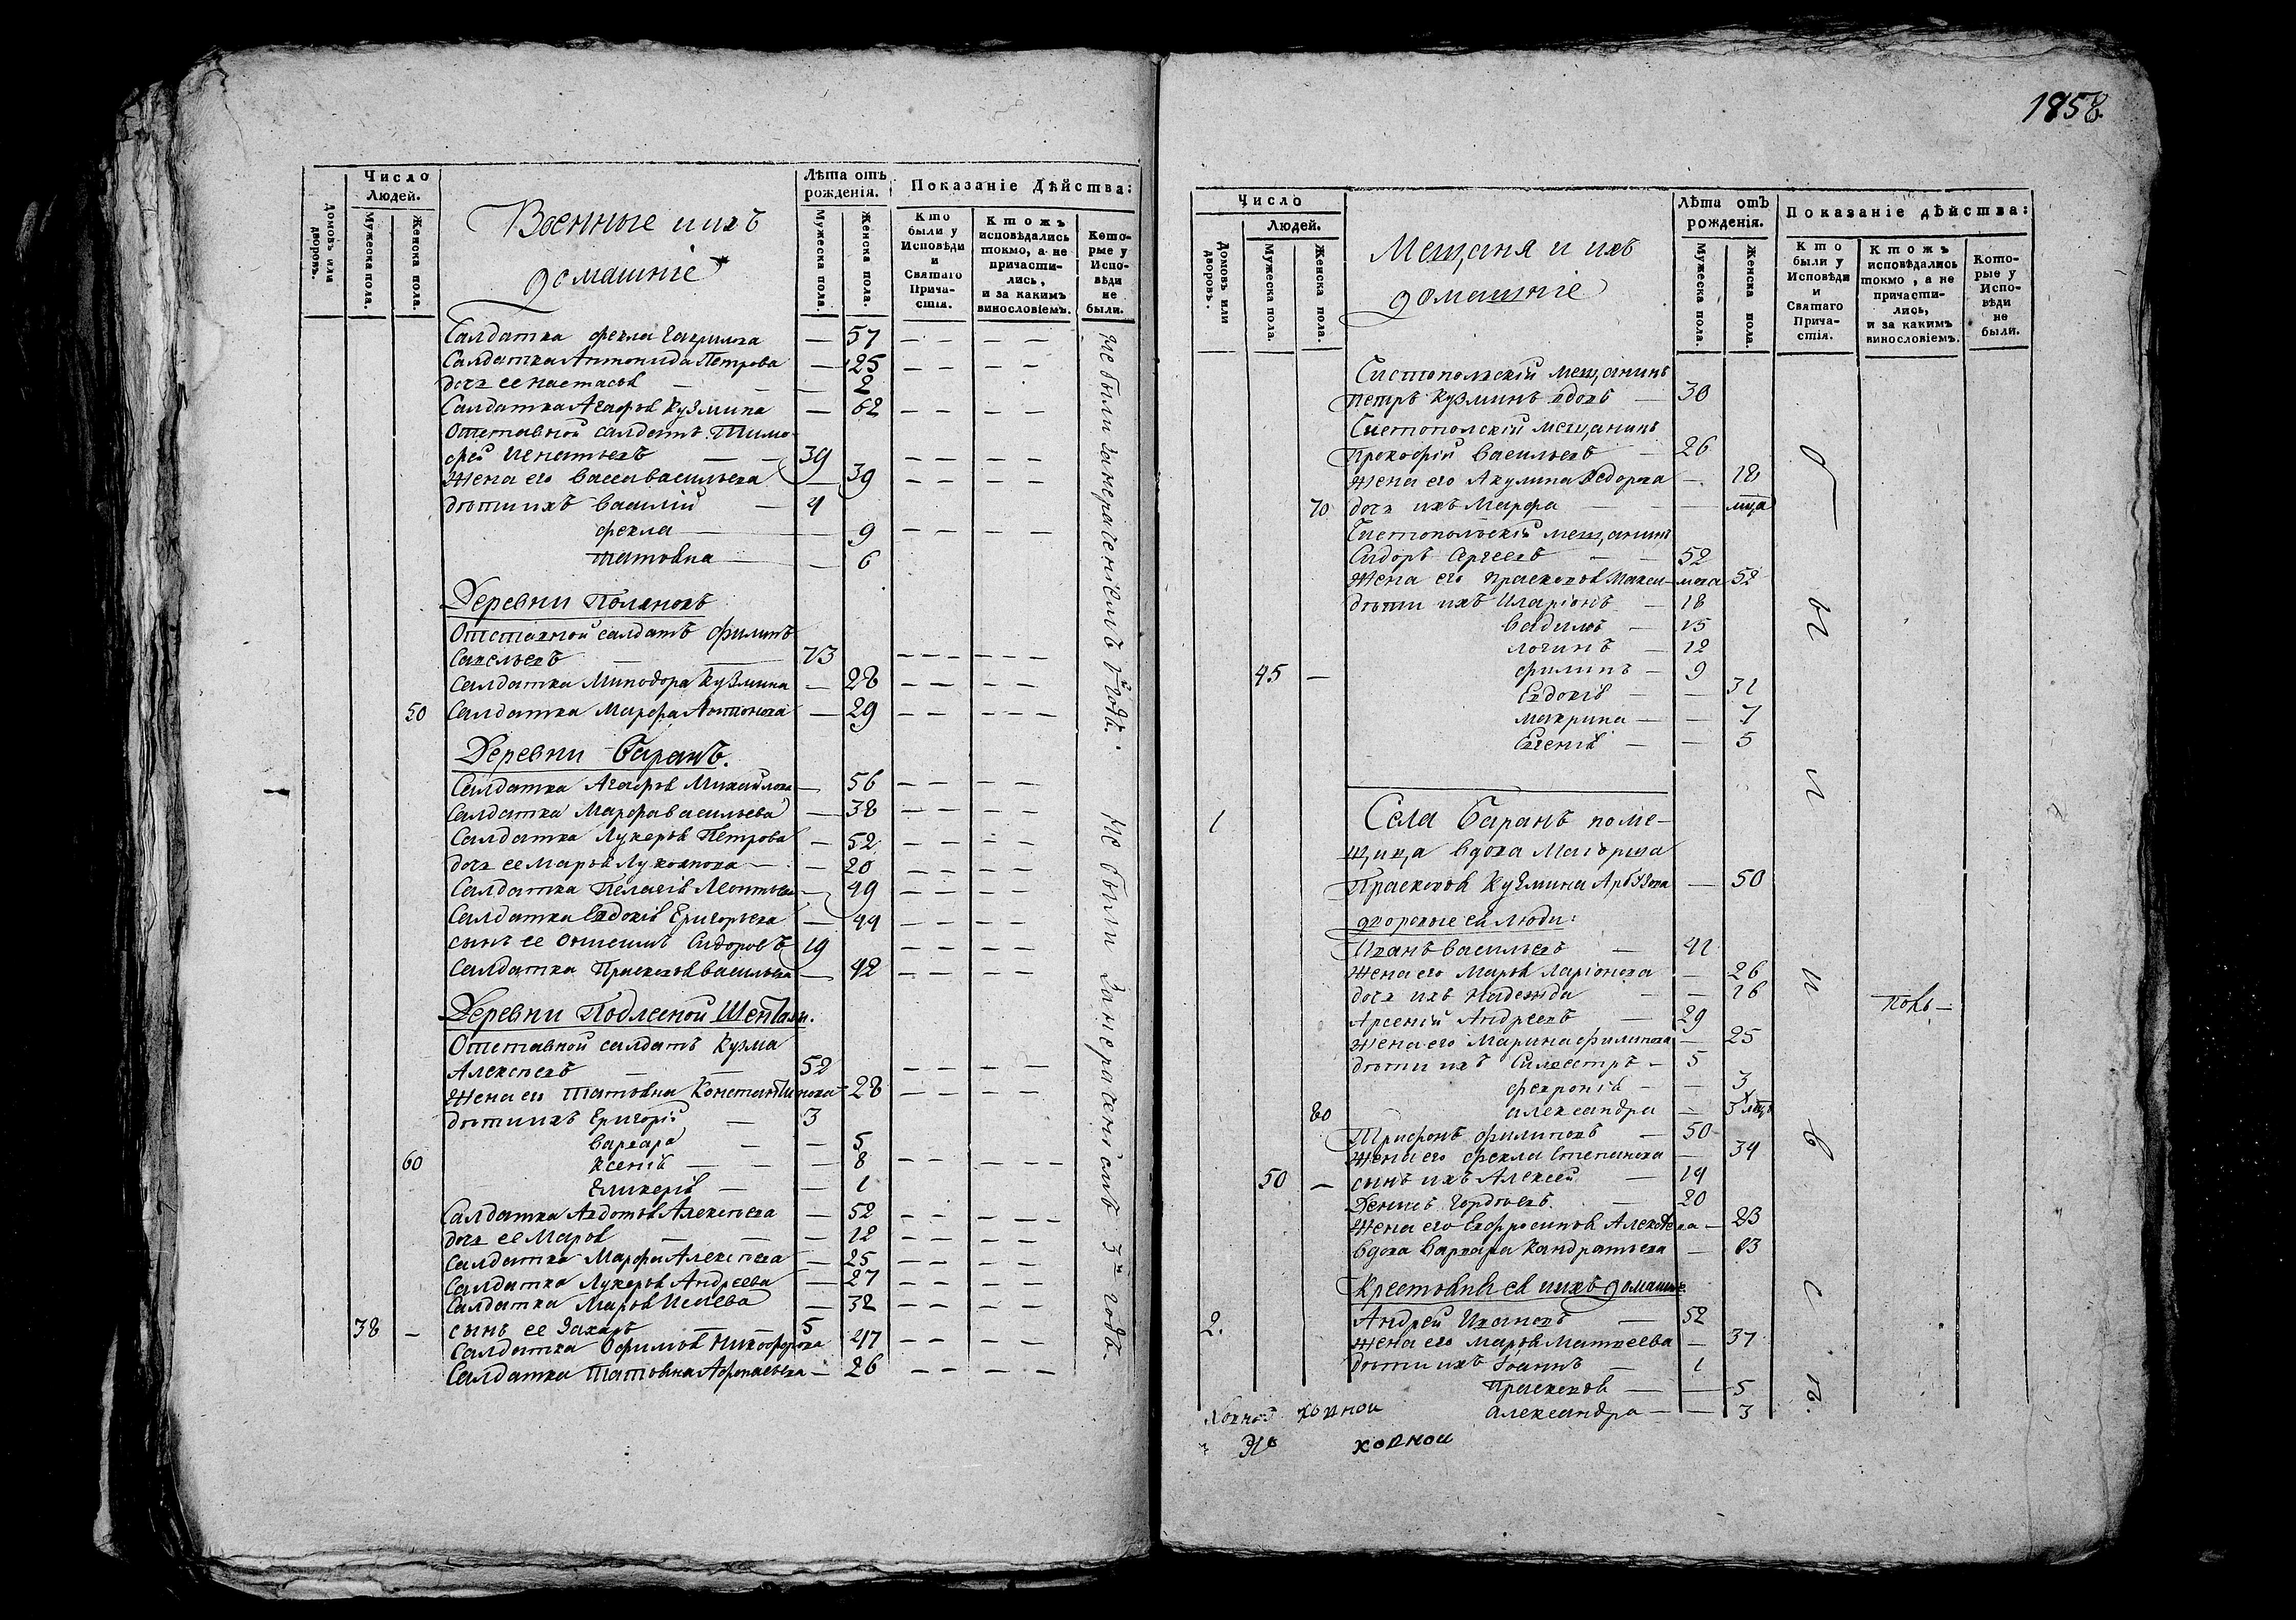 Число
Людей.
Домовъ или дворовъ.
Мужеска пола.
Женска пола.
Военные и ихъ
домашніе
Лѣта отъ
рожденія.
Мужеска пола.
Женска пола.
Показаніе Дѣйства:
Кто были у Исповѣди и Святаго Прича-стія.
Ктожъ исповѣдались токмо, а не причасти-лись, и за какимъ винословіемъ.
Кото-рые у Испо-вѣди не были.
Салдатка Фекла Гаврилова — 57
Салдатка Антонида Петрова — 25
дочь ее Настасья — 2
Салдатка Агафья Кузмина — 62
Отставной салдатъ Тимо-
фей Игнатьевъ — 39
Жена его Васса Васильева — 39
дѣти ихъ Василій — 4
Фекла — 9
Татьяна — 6
Деревни Полянокъ
Отставной салдатъ Филипъ
Савельевъ — 73
Салдатка Минодора Кузмина — 28
50 Салдатка Марфа Антонова — 29
Деревни Баранъ.
Салдатка Агафья Михайлова — 56
Салдатка Марфа Васильева — 38
Салдатка Лукерья Петрова — 52
дочь ее Марья Лукоянова — 20
Салдатка Пелагія Леонтьева — 49
Салдатка Евдокія Григорьева — 44
сынъ ее Сидоровъ 19
Салдатка Прасковья Васильева — 42
Деревни Подлесной Шентали.
Отставной салдатъ Кузма
Алексѣевъ — 52
Жена его Татьяна Константинова — 28
дѣти ихъ Григорій — 3
Варвара — 5
60 Ксенія — 8
Гликерія — 1
Салдатка Авдотья Алексѣева — 52
дочь ее Марья — 12
Салдатка Марфа Алексѣева — 25
Салдатка Лукерья Андреева — 27
Салдатка Марья Исаева — 32
38 — сынъ ее Захаръ — 5
Салдатка Офимья Никифорова 47
Салдатка Татьяна Афонасьева — 26
Не были за нерасеніемъ
Не были за нерасеніемъ 3й годъ.
1858
Число
Людей.
Домовъ или дворовъ.
Мужеска пола.
Женска пола.
Мещаня и ихъ
домашніе
Лѣта отъ
рожденія.
Мужеска пола.
Женска пола.
Показаніе дѣйства:
Кто были у Исповѣди и Святаго Прича-стія.
Ктожъ исповѣдались токмо, а не причасти-лись, и за какимъ винословіемъ.
Кото-рые у Испо-вѣди не были.
Чистопольскій мещанинъ
Петръ Кузминъ вдовъ — 30
Чистополскій мещанинъ
Прокофій Васильевъ — 26
Жена его Акулина Ѳедорова — 18
70 дочь ихъ Марфа —
Чистопольскій мещанинъ
Сидоръ Сергеевъ — 52
Жена его Прасковья Макси-мова 52
дѣти ихъ Иларіонъ — 18
Вадимъ — 15
Логинъ — 12
45 — Филипъ — 9
Евдокія — 31
Макрина — 7
Евгенія — 5
1 Села Баранъ поме-
щица вдова Маіорша
Прасковья Кузмина Арбузова — 50
дворовые ея люди:
Иванъ Васильевъ — 41
Жена его Марья Ларіонова — 26
дочь ихъ Надежда — 16
Арсеній Андреевъ — 29
Жена его Марина Филипова — 25
дѣти ихъ Силвестръ — 5
Февронія — 3
80 Александра —
Трифонъ Филиповъ — 50
Жена его Фекла Степанова — 34
50 — сынъ ихъ Алексей — 14
Денисъ Гордѣевъ — 20
Жена его Евфросинья Алексѣева — 23
Вдова Варвара Кандратьева — 63
Крестьяня ея и ихъ домашніе
2. Андрей Ивановъ — 52
Жена его Марья Матвеева — 37
дѣти ихъ Іоаннъ — 1
Прасковья — 5
Александра — 3